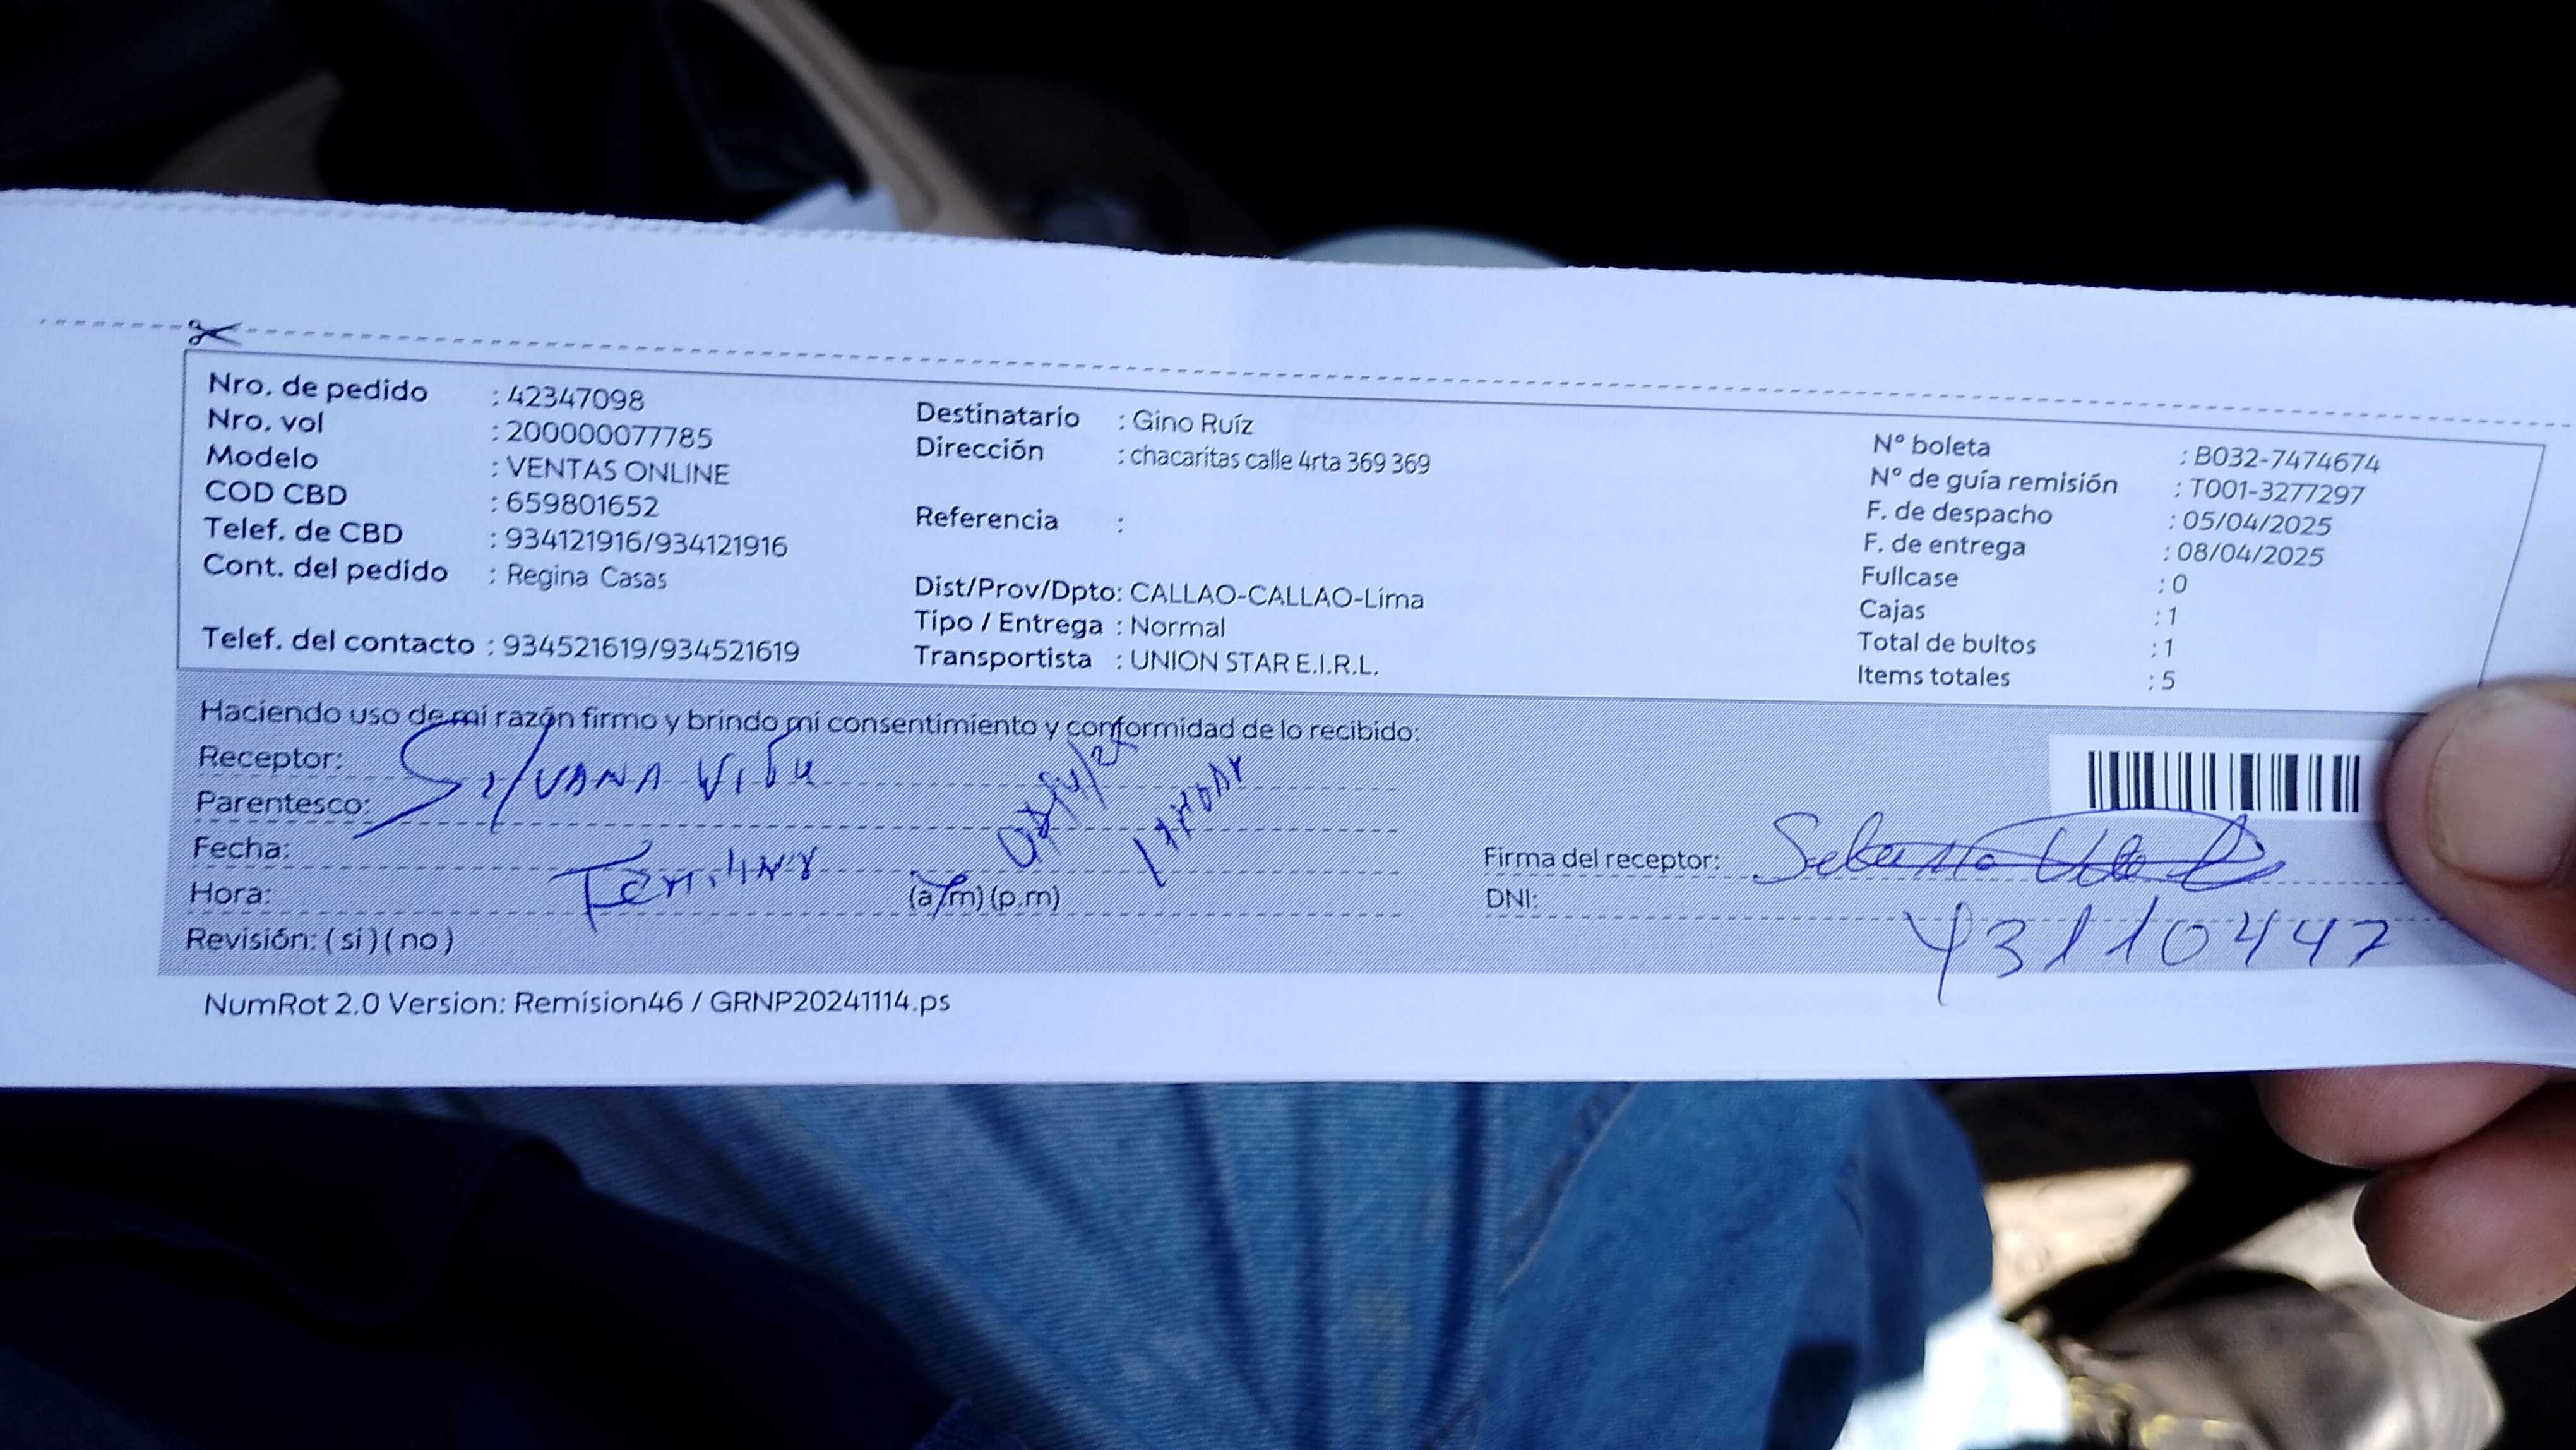 Nro. de pedido : 42347098
Nro. vol : 200000077785
Modelo : VENTAS ONLINE
COD CBD : 659801652
Telef. de CBD : 934121916/934121916
Cont. del pedido : Regina Casas
Telef. del contacto : 934521619/934521619
Destinatario : Gino Ruíz
Dirección : chacaritas calle 4rta 369 369
Referencia :
Dist/Prov/Dpto: CALLAO-CALLAO-Lima
Tipo / Entrega : Normal
Transportista : UNION STAR E.I.R.L.
N° boleta : B032-7474674
N° de guía remisión : T001-3277297
F. de despacho : 05/04/2025
F. de entrega : 08/04/2025
Fullcase : 0
Cajas : 1
Total de bultos : 1
Items totales : 5
Haciendo uso de mi razón firmo y brindo mi consentimiento y conformidad de lo recibido:
Receptor: SILVANA
Parentesco:
Fecha:
Hora: (a.m) (p.m)
Revisión: ( si ) ( no )
Firma del receptor:
DNI: 43110447
NumRot 2.0 Version: Remision46 / GRNP20241114.ps